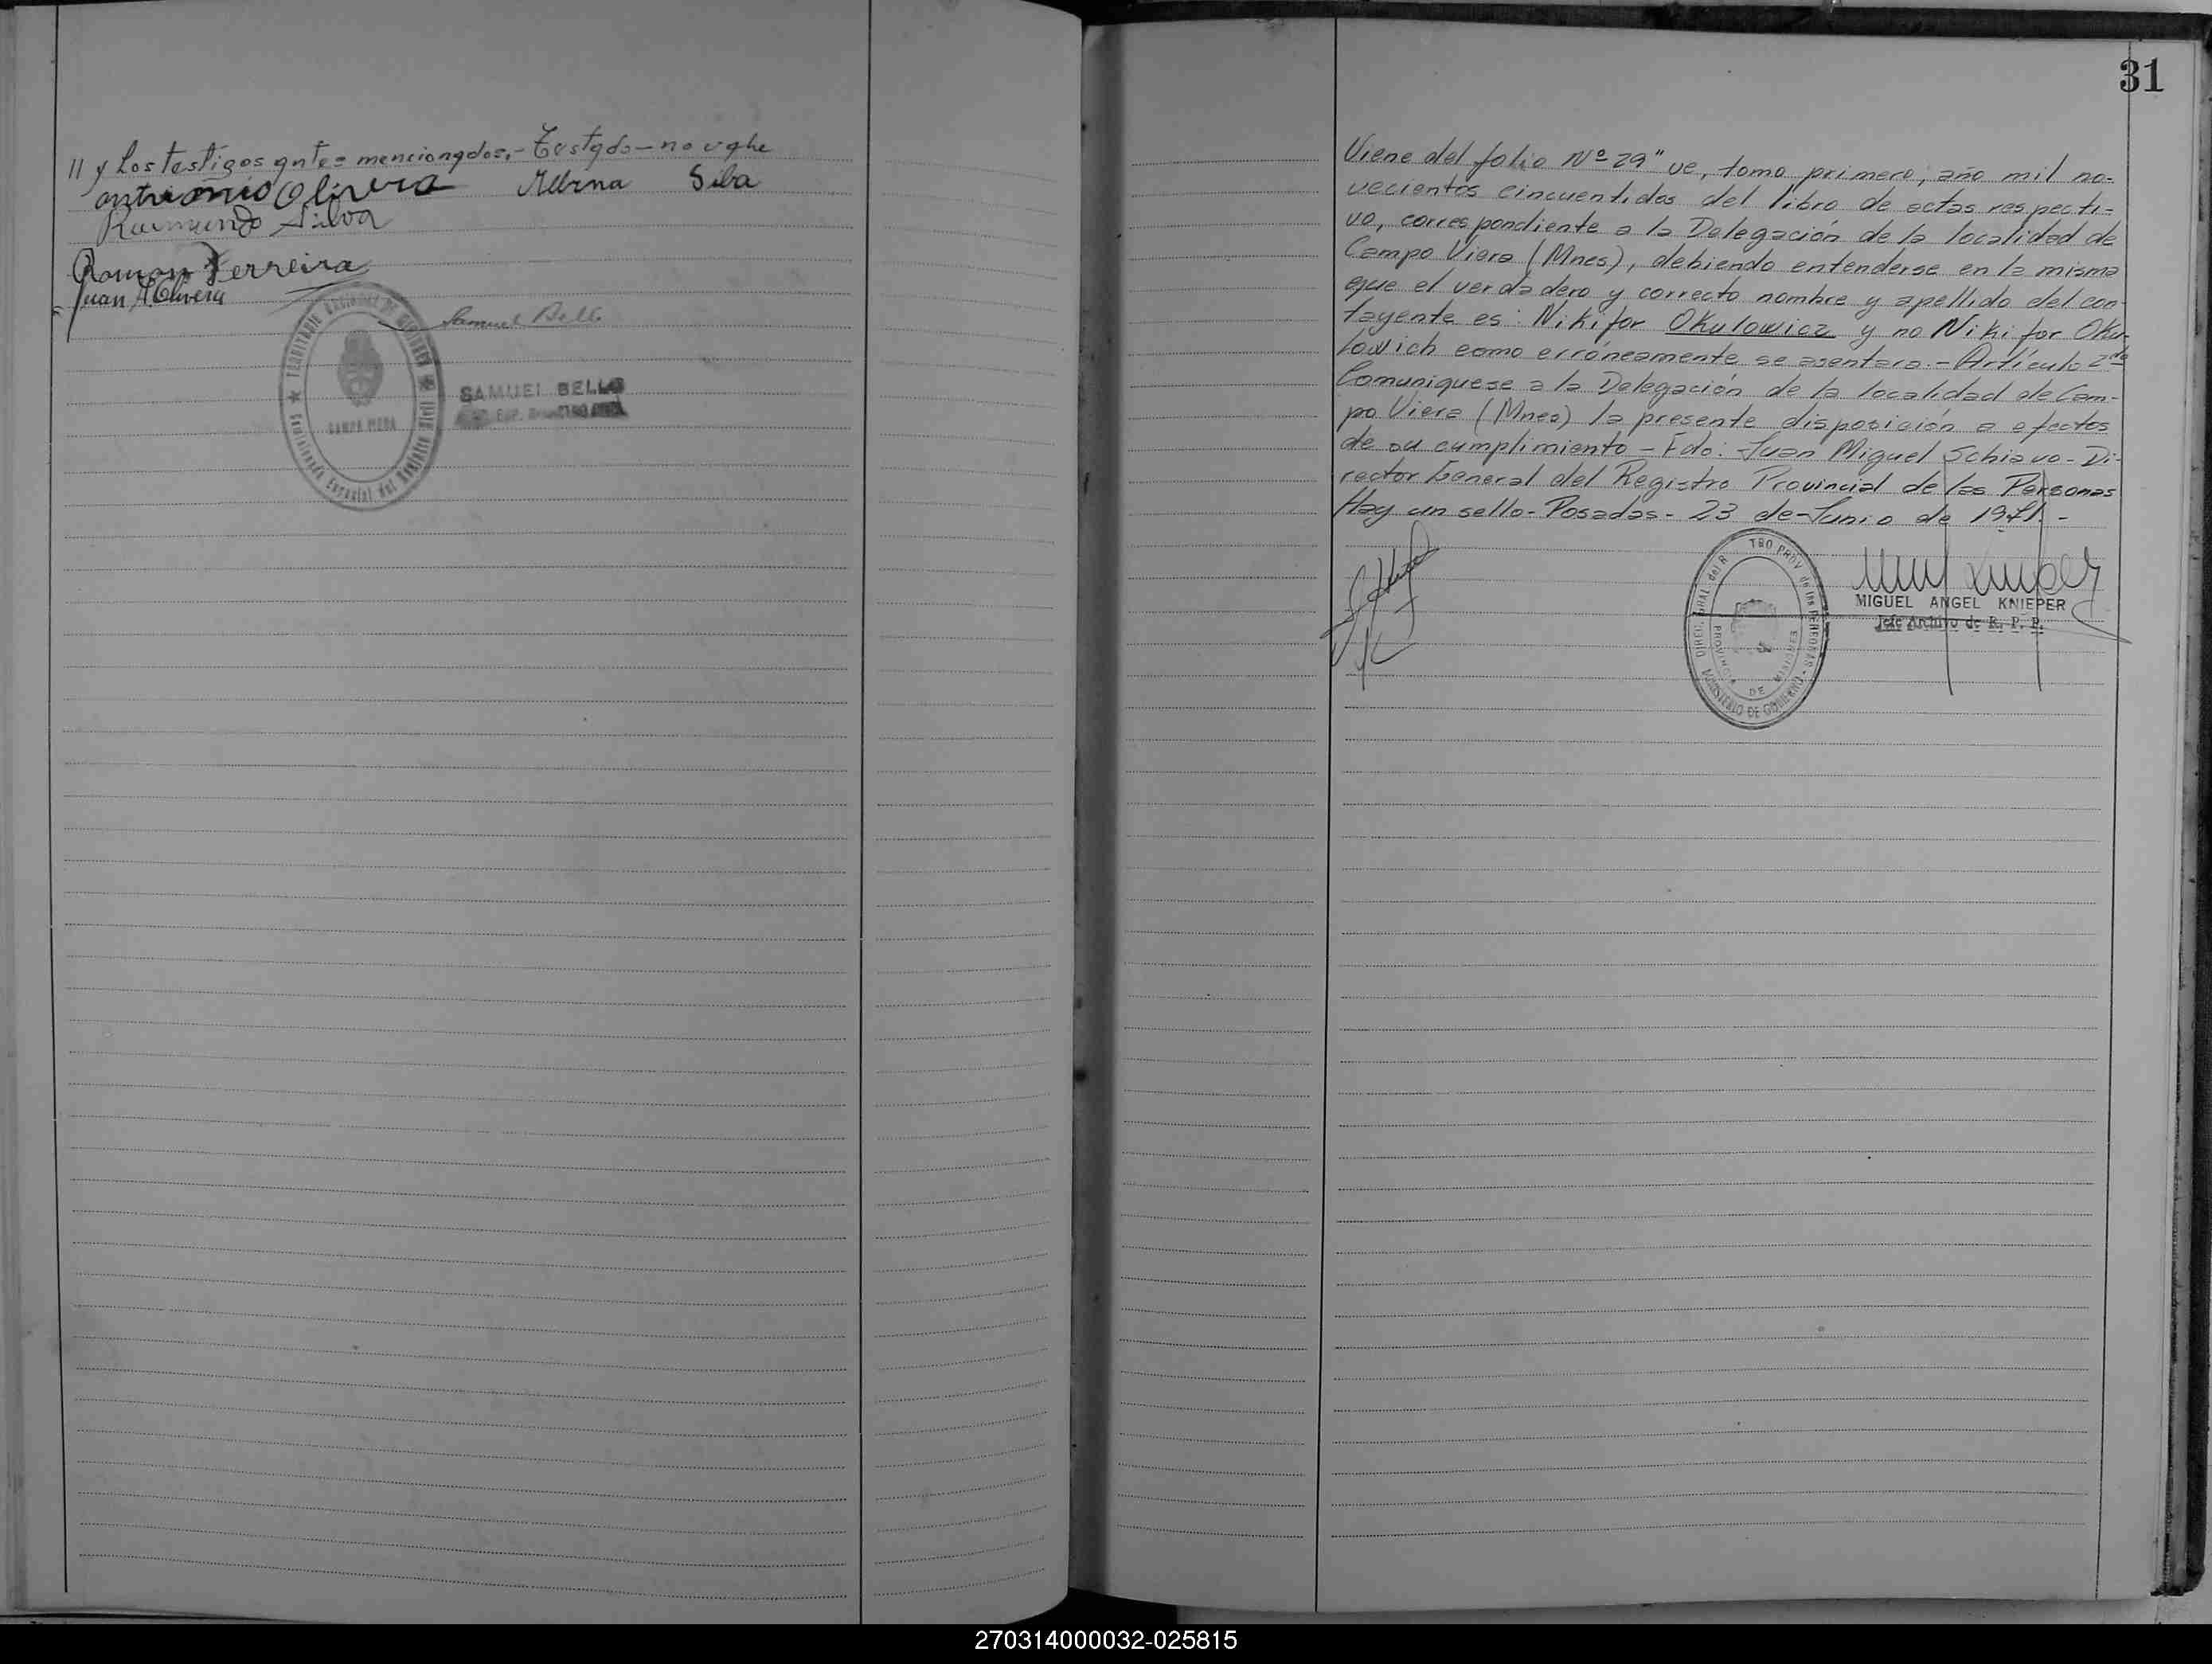 // y los testigos antes mencionados.- Testado - no vale
antonio Olivera Albina Silba
Raimundo Silva
Ramon Ferreira
Juan A. Olivera
Samuel Bello
TERRITORIO NACIONAL DE MISIONES
CAMPO VIERA
Registro Civil
SAMUEL BELLO
31
Viene del folio Nº 29" ve, tomo primero, año mil no-
vecientos cincuentidos del libro de actas respecti-
vo, correspondiente a la Delegación de la localidad de
Campo Viera (Mnes), debiendo entenderse en la misma
que el verdadero y correcto nombre y apellido del con-
tayente es: Nikifor Okulowicz y no Nikifor Oku-
lowich como erróneamente se asentara.- Artículo 2do
Comuniquese a la Delegación de la localidad de Cam-
po Viera (Mnes) la presente disposición a efectos
de su cumplimiento - Fdo: Juan Miguel Schiavo - Di-
rector General del Registro Provincial de las Personas
Hay un sello - Posadas - 23 de - Junio de 1971.-
DIREC. GRAL. del R TRO. PROV. de las PERSONAS
MINISTERIO DE GOBIERNO
PROVINCIA DE MISIONES
MIGUEL ANGEL KNIEPER
Jefe Archivo de R. P. P.
270314000032-025815